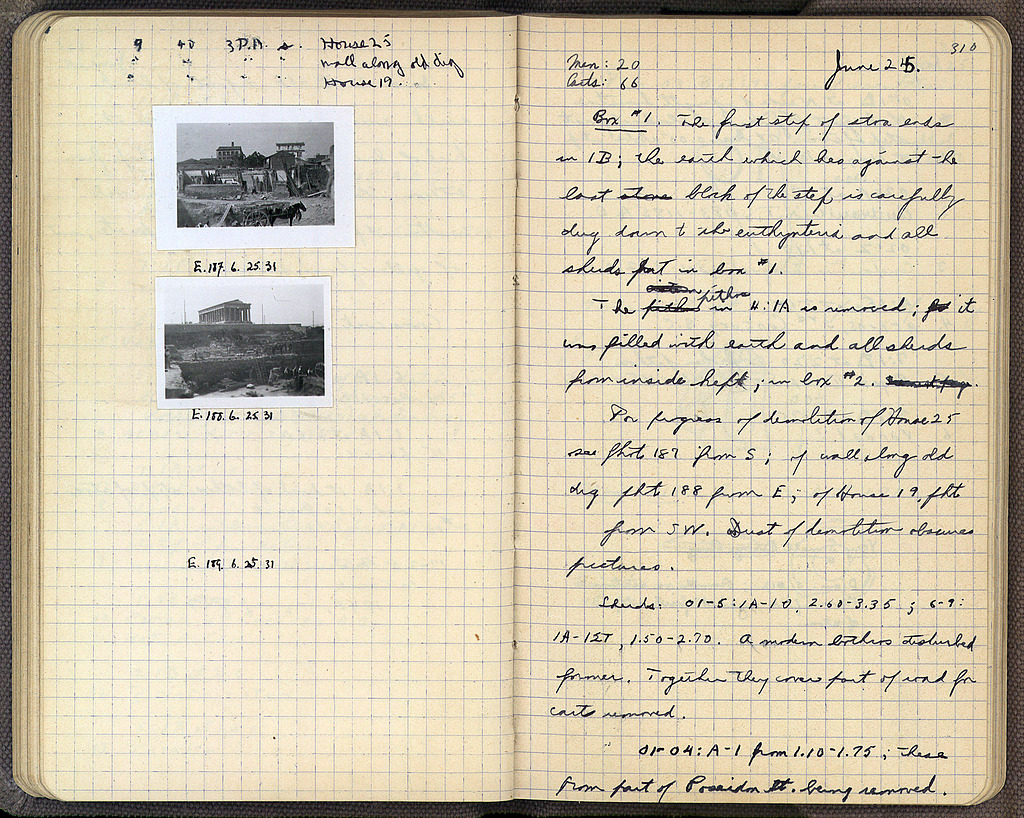 9 40 3 P.M. s. House 25
" " " " wall along old dig
" " " " House 19.
E. 187. 6. 25. 31
E. 188. 6. 25 31
E. 189. 6. 25. 31
310
Men: 20
Carts: 66
June 25.
Box #1. The first step of stoa ends
in 1B; the earth which lies against the
last stone block of the step is carefully
dug down to the euthynteria and all
sherds put in box #1.
pithos
The in H:1A is removed; it
was filled with earth and all sherds
from inside kept; in box #2.
For progress of demolition of House 25
see phot 187 from S; of wall along old
dig pht 188 from E; of House 19, pht
from SW. Dust of demolition obscures
pictures.
Sherds: 01-5:1A-10, 2.60-3.35; 6-9:
1A-1ΣT, 1.50-2.70. A modern bothros disturbed
former. Together they cover part of road for
carts removed.
01-04: A-1 from 1.10-1.75; these
from part of Poseidon St. being removed.